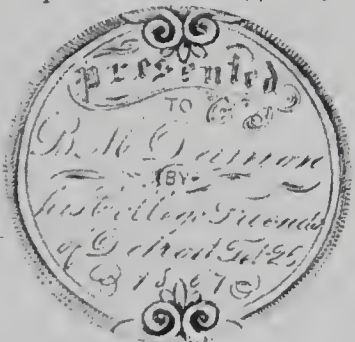 presented
TO
B. M.
BY
his College Friends
of Detroit Feb 25
1867